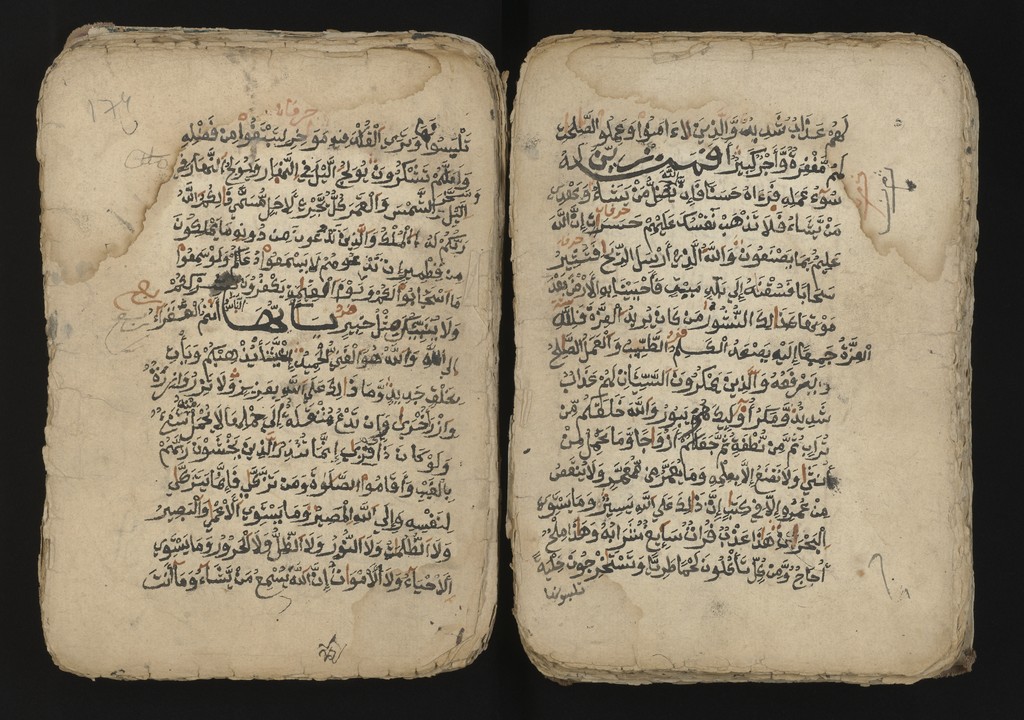 لهم عذاب شديد والذين ءامنوا وعملوا الصلحت
لهم مغفرة وأجر كبير أفمن زين له
سوء عمله فرءاه حسنا فإن الله يضل من يشاء ويهدي
من يشاء فلا تذهب نفسك عليهم حسرت إن الله
عليم بما يصنعون والله الذي أرسل الريح فتثير
سحابا فسقنه إلى بلد ميت فأحيينا به الأرض بعد
موتها كذلك النشور من كان يريد العزة فلله
العزة جميعا إليه يصعد الكلم الطيب والعمل الصلح
يرفعه والذين يمكرون السيئات لهم عذاب
شديد ومكر أولئك هو يبور والله خلقكم من
تراب ثم من نطفة ثم جعلكم أزواجا وما تحمل من
أنثى ولا تضع إلا بعلمه وما يعمر من معمر ولا ينقص
من عمره إلا في كتب إن ذلك على الله يسير وما يستوي
البحران هذا عذب فرات سائغ شرابه وهذا ملح
أجاج ومن كل تأكلون لحما طريا وتستخرجون حلية
تلبسونها
174
تلبسونها وترى الفلك فيه مواخر لتبتغوا من فضله
ولعلكم تشكرون يولج اليل في النهار ويولج النهار في
اليل وسخر الشمس والقمر كل يجري لأجل مسمى ذلكم الله
ربكم له الملك والذين تدعون من دونه ما يملكون
من قطمير إن تدعوهم لا يسمعوا دعاءكم ولو سمعوا
ما استجابوا لكم ويوم القيمة يكفرون بشرككم
ولا ينبئك مثل خبير يأيها الناس أنتم الفقراء
إلى الله والله هو الغني الحميد إن يشأ يذهبكم ويأت
بخلق جديد وما ذلك على الله بعزيز ولا تزر وازرة
وزر أخرى وإن تدع مثقلة إلى حملها لا يحمل منه شيء
ولو كان ذا قربى إنما تنذر الذين يخشون ربهم
بالغيب وأقاموا الصلوة ومن تزكى فإنما يتزكى
لنفسه وإلى الله المصير وما يستوي الأعمى والبصير
ولا الظلمت ولا النور ولا الظل ولا الحرور وما يستوي
الأحياء ولا الأموات إن الله يسمع من يشاء وما أنت